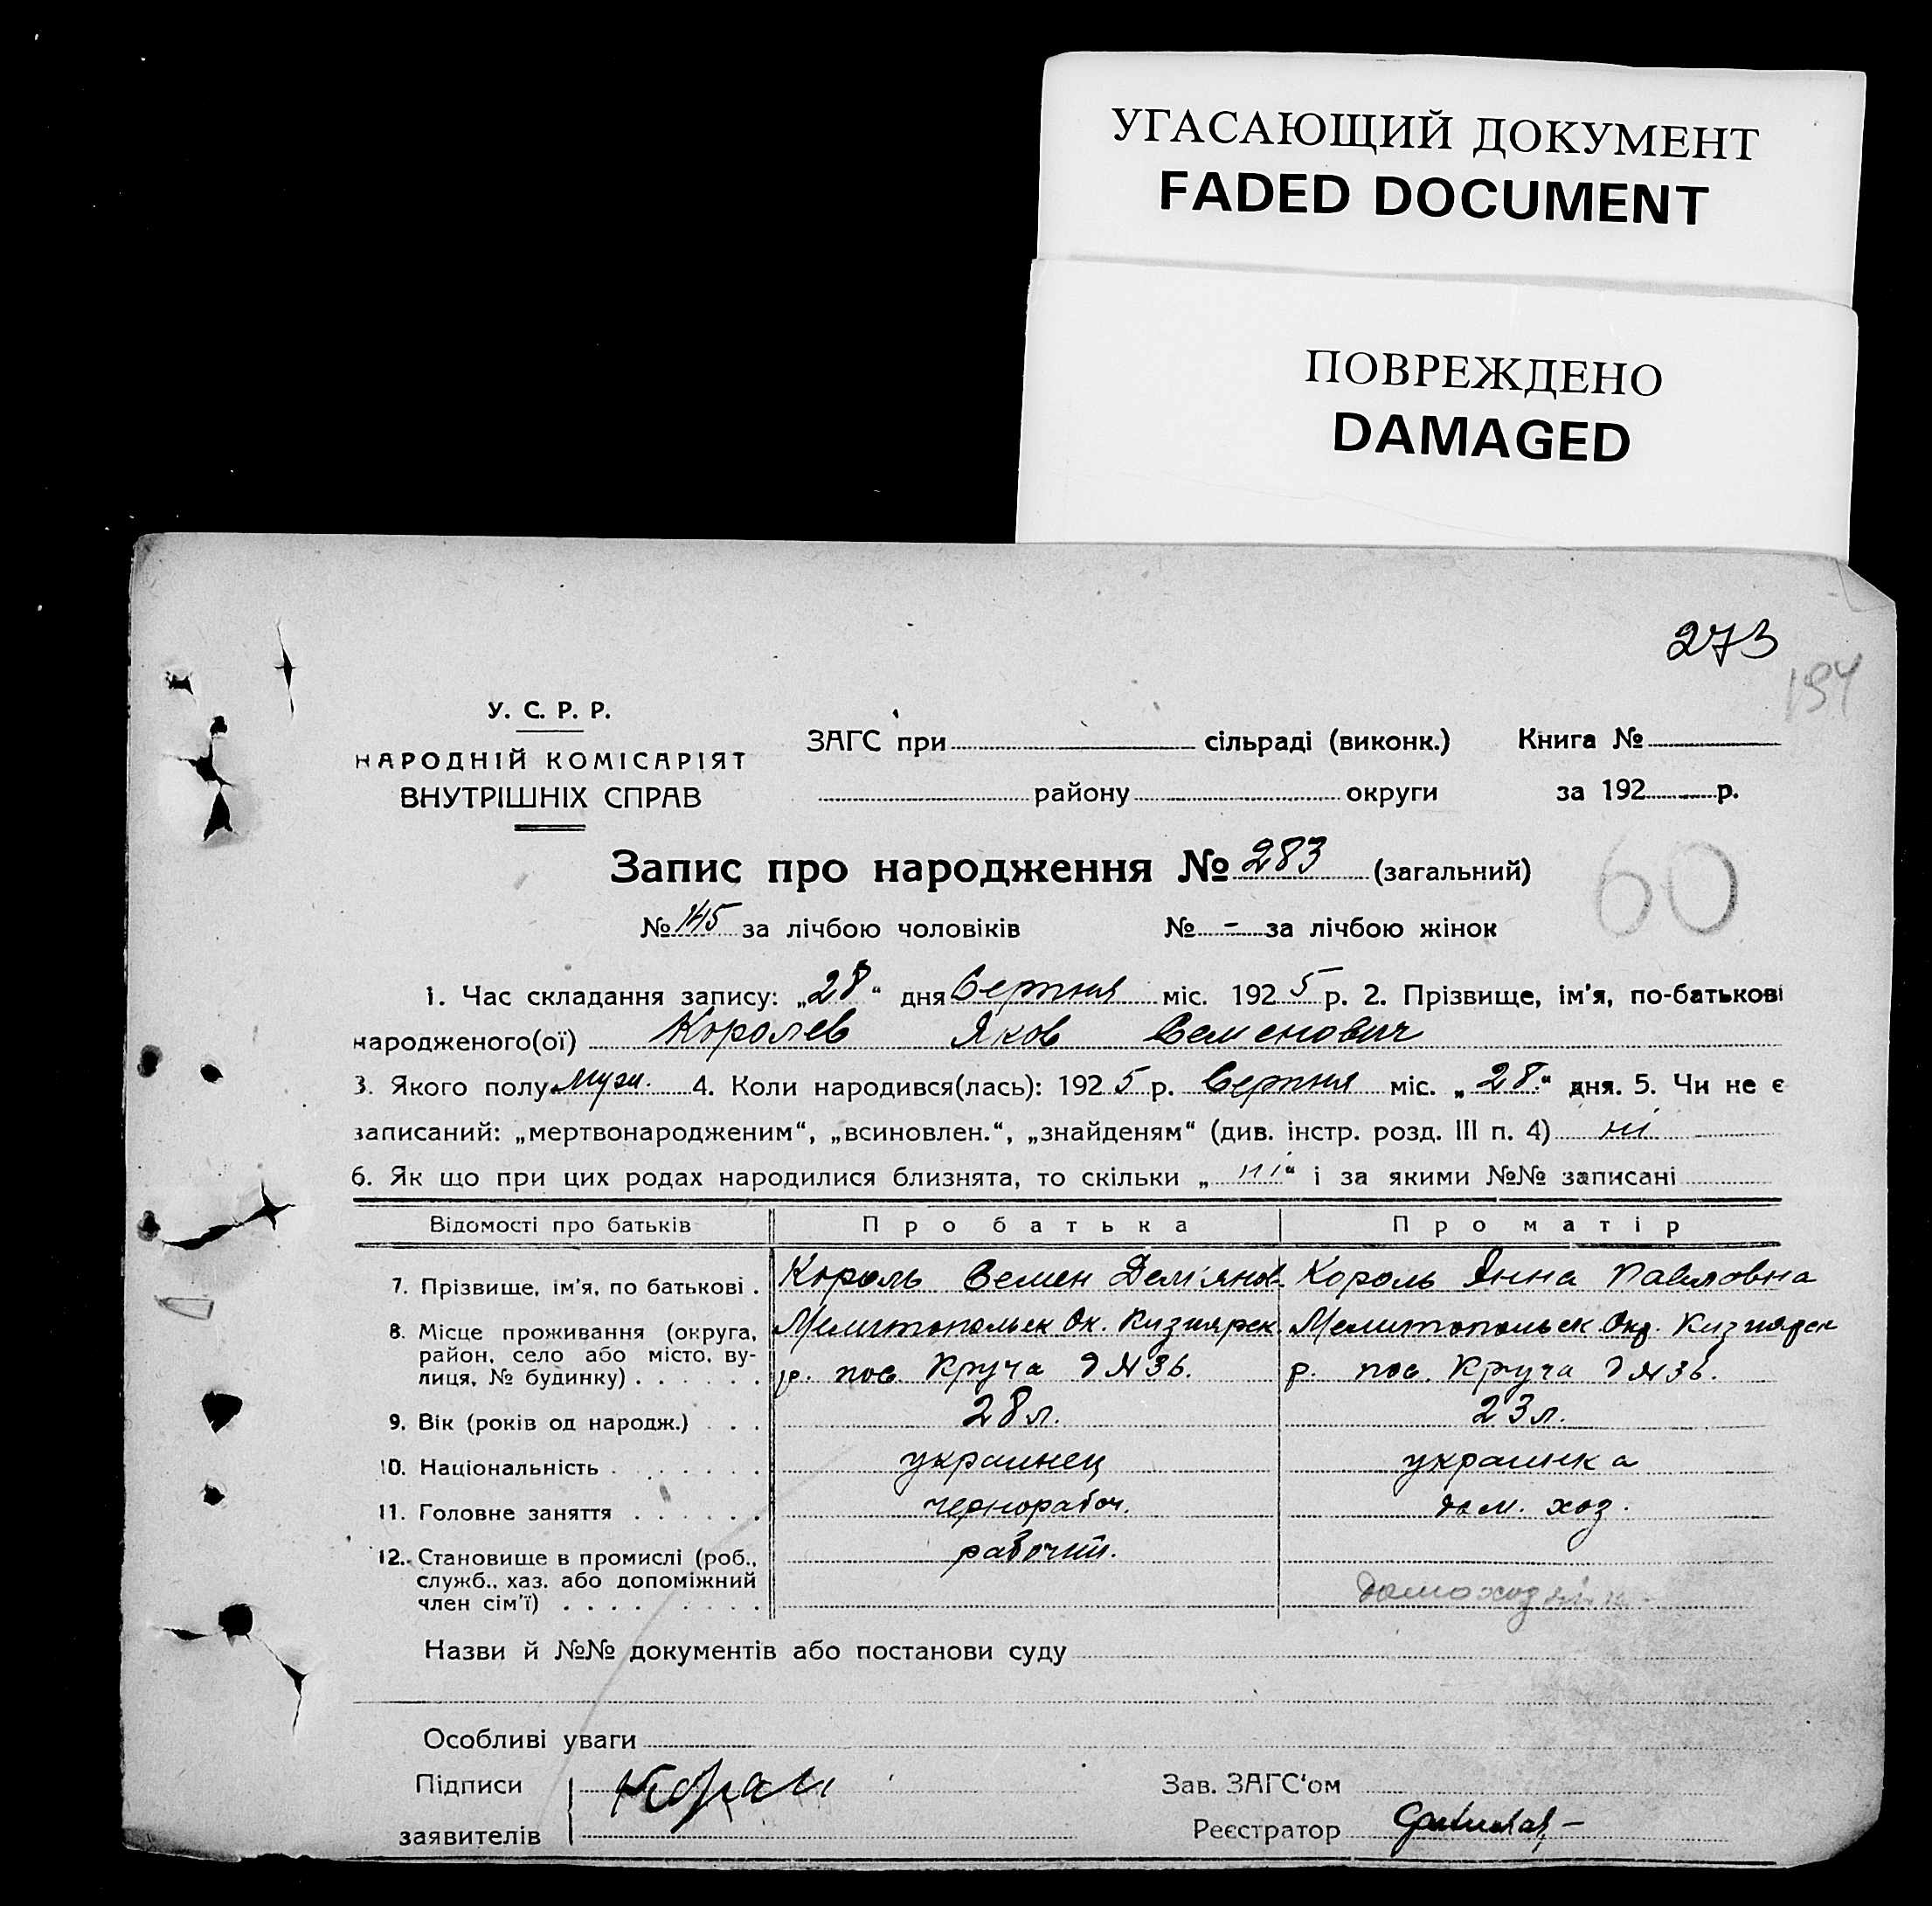 УГАСАЮЩИЙ ДОКУМЕНТ
FADED DOCUMENT
ПОВРЕЖДЕНО
DAMAGED
273
194
У. С. Р. Р.
НАРОДНІЙ КОМІСАРІЯТ
ВНУТРІШНІХ СПРАВ
ЗАГС при сільраді (виконк.) Книга №
району округи за 192 р.
Запис про народження № 283 (загальний)
60
№ 145 за лічбою чоловіків № - за лічбою жінок
1. Час складання запису: „28“ дня Серпня міс. 1925 р. 2. Прізвище, ім'я, по-батькові
народженого(ої) Королев Яков Семенович
3. Якого полу Муж. 4. Коли народився(лась): 1925 р. Серпня міс. „28.“ дня. 5. Чи не є
записаний: „мертвонародженим“, „всиновлен.“, „знайденям“ (див. інстр. розд. III п. 4) ні
6. Як що при цих родах народилися близнята, то скільки „ні“ і за якими №№ записані
Відомості про батьків Про батька Про матір
7. Прізвище, ім'я, по батькові . Король Семен Дем'янов. Король Анна Павловна
8. Місце проживання (округа, район, село або місто, вулиця, № будинку) Мелитопольск Ок. Кизиярск. Мелитопольск Окр. Кизиярск
р. пос. Круча д № 36. р. пос. Круча д № 36.
9. Вік (років од народж.) . . . 28 л. 23 л.
10. Національність . . . . . . . украинец украинка
11. Головне заняття . . . . . . чернорабоч. дом. хоз.
12. Становище в промислі (роб., рабочий.
служб., хаз. або допоміжний
член сім'ї) . . . . . . . . .
Назви й №№ документів або постанови суду
Особливі уваги
Підписи Зав. ЗАГС'ом
заявителів Реєстратор